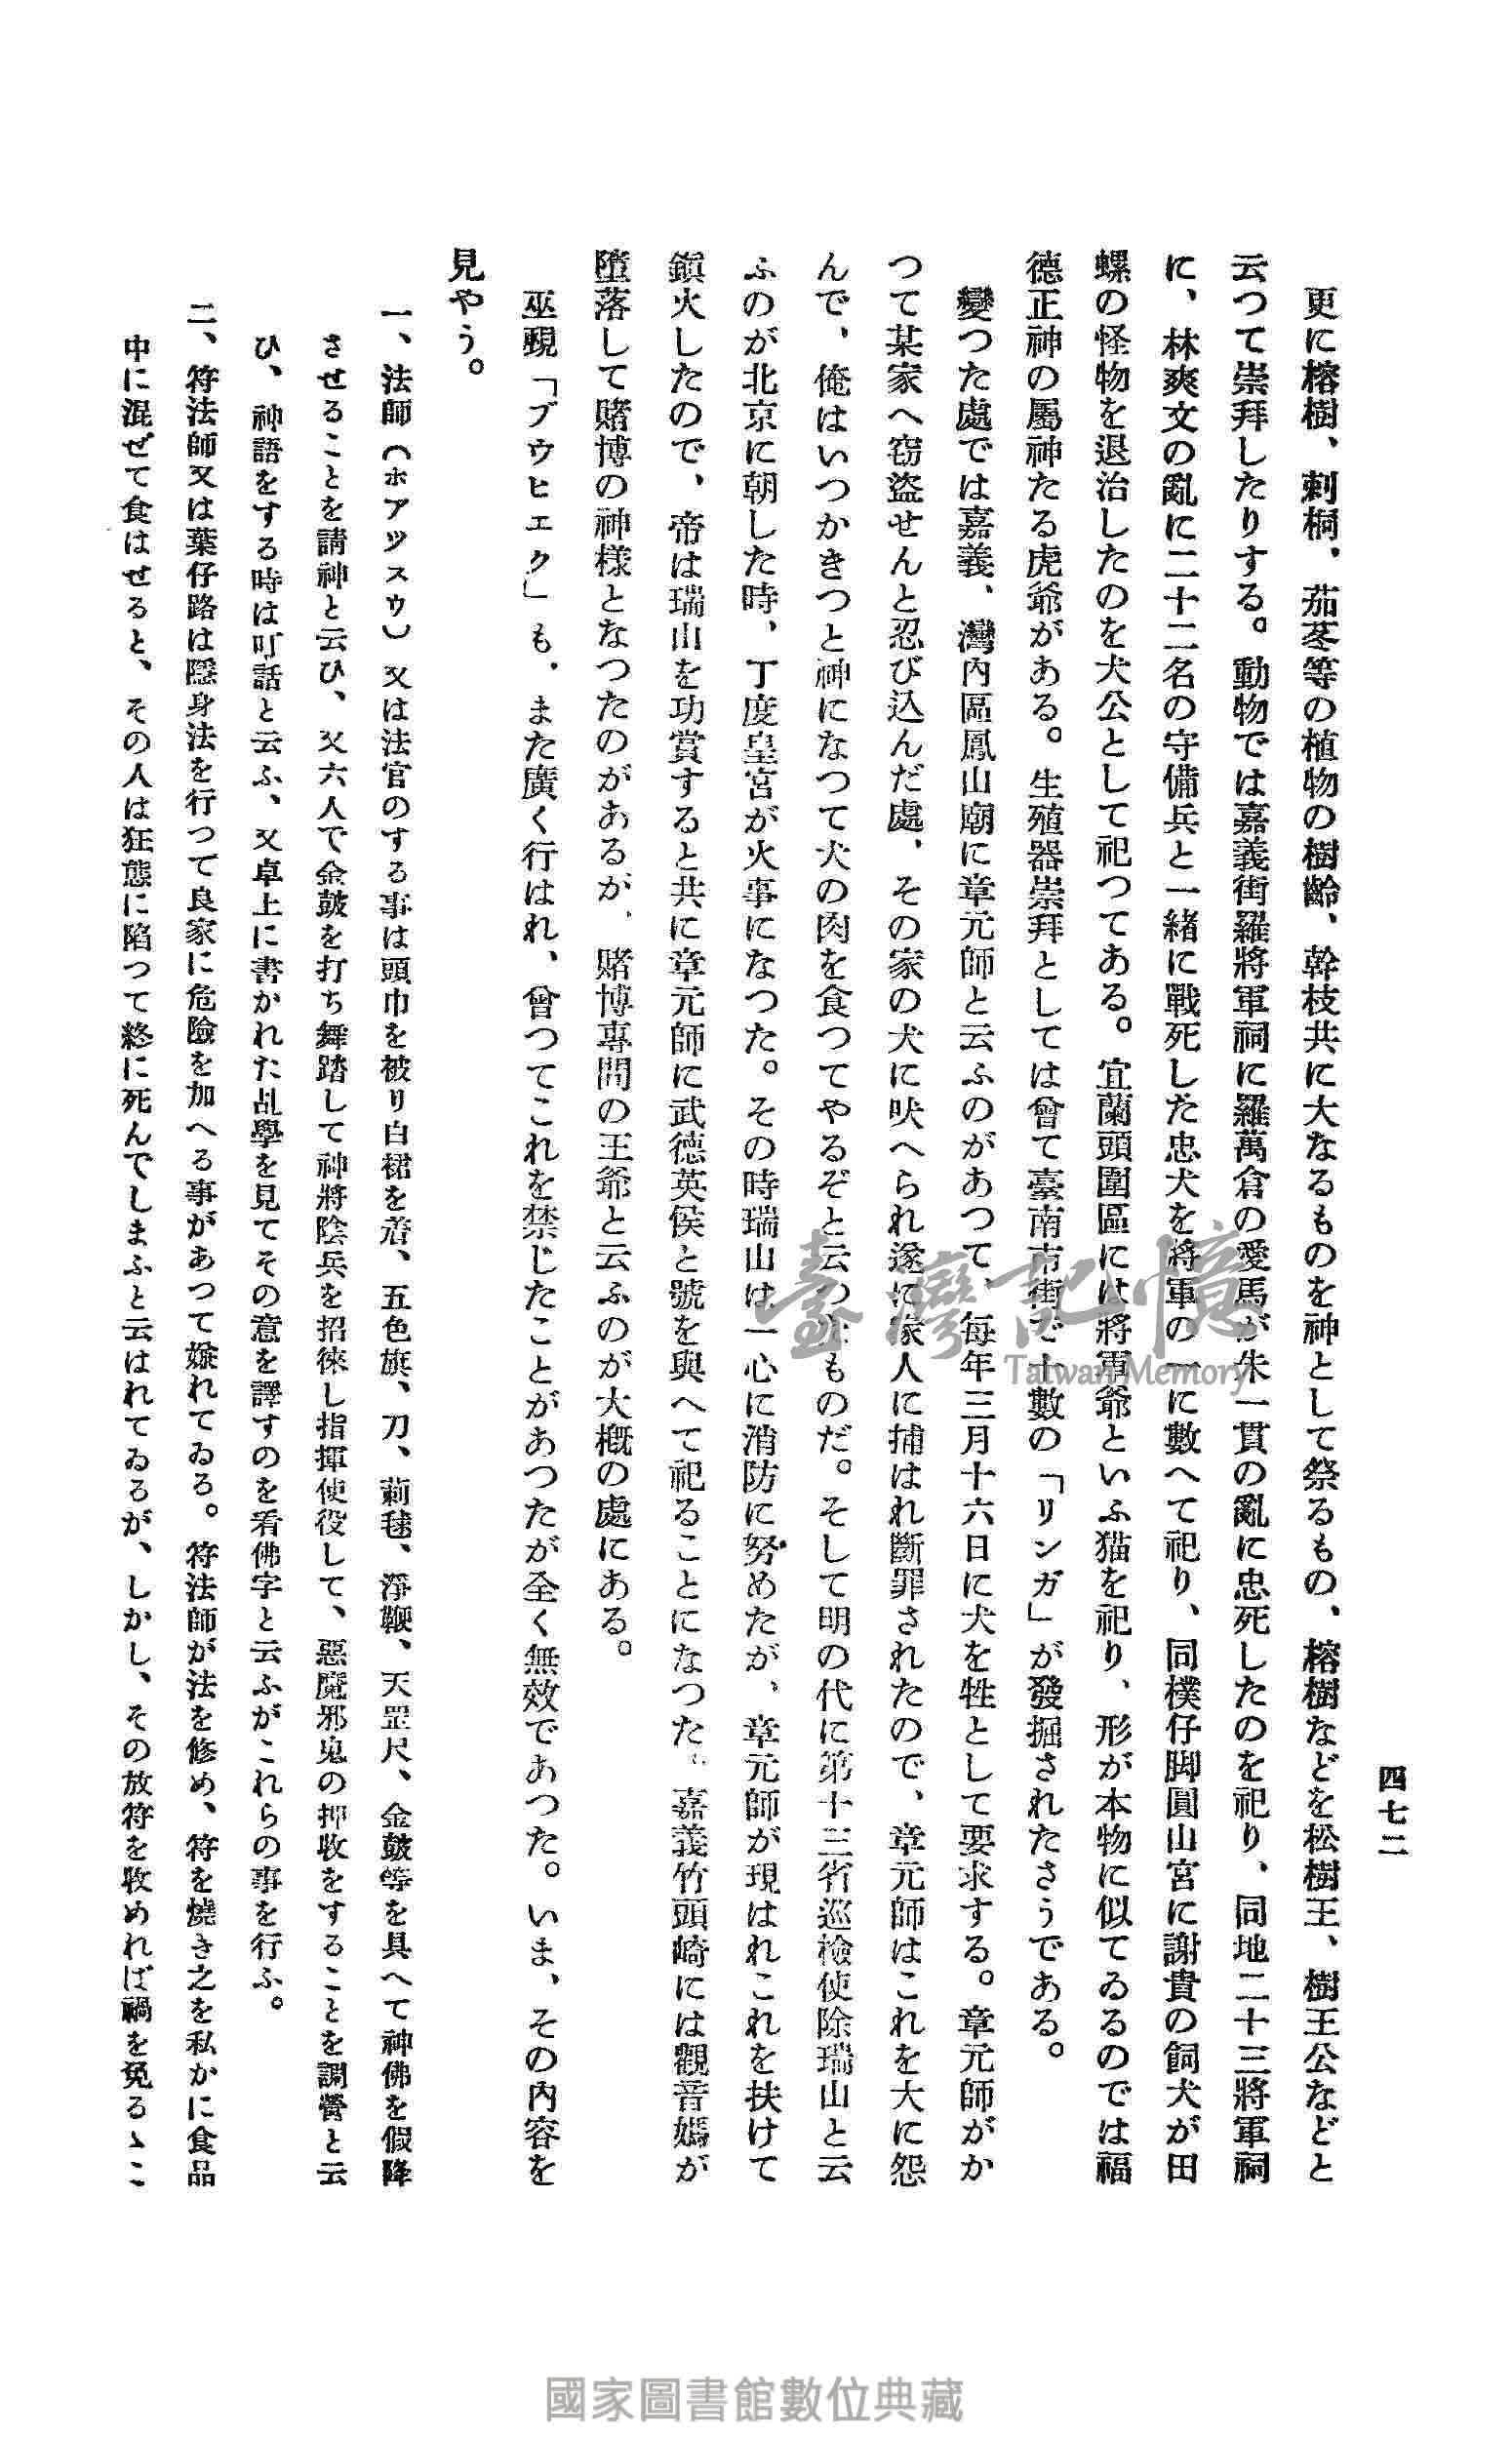 四七二
更に榕樹、刺桐、茄苳等の植物の樹齡、幹枝共に大なるものを神として祭るもの、榕樹などを松樹王、樹王公などと
云つて崇拜したりする。動物では嘉義街羅將軍祠に羅萬倉の愛馬が朱一貫の亂に忠死したのを祀り、同地二十三將軍祠
に、林爽文の亂に二十二名の守備兵と一緒に戰死した忠犬を將軍の一に數へて祀り、同樸仔脚圓山宮に謝貴の飼犬が田
螺の怪物を退治したのを犬公として祀つてある。宜蘭頭圍區には將軍爺といふ猫を祀り、形が本物に似てゐるのでは福
德正神の屬神たる虎爺がある。生殖器崇拜としては曾て臺南市街で十數の「リンガ」が發掘されたさうである。
變つた處では嘉義、灣内區鳳山廟に章元師と云ふのがあつて、每年三月十六日に犬を牲として要求する。章元師がか
つて某家へ窃盜せんと忍び込んだ處、その家の犬に吠へられ遂に家人に捕はれ斷罪されたので、章元師はこれを大に怨
んで、俺はいつかきつと神になつて犬の肉を食つてやるぞと云つたものだ。そして明の代に第十三省巡檢使除瑞山と云
ふのが北京に朝した時、丁度皇宮が火事になつた。その時瑞山は一心に消防に努めたが、章元師が現はれこれを扶けて
鎭火したので、帝は瑞山を功賞すると共に章元師に武德英侯と號を與へて祀ることになつた。嘉義竹頭崎には觀音媽が
墮落して賭博の神樣となつたのがあるが、賭博專問の王爺と云ふのが大概の處にある。
巫覡「ブウヒエク」も、また廣く行はれ、曾つてこれを禁じたことがあつたが全く無效であつた。いま、その内容を
見やう。
一、法師（ホアツスウ）又は法官のする事は頭巾を被り白裙を着、五色旗、刀、莿毬、淨鞭、天罡尺、金鼓等を具へて神佛を假降
させることを請神と云ひ、又六人で金鼓を打ち舞踏して神將陰兵を招徠し指揮使役して、惡魔邪鬼の押收をすることを調營と云
ひ、神語をする時は叮話と云ふ、又卓上に書かれた乩學を見てその意を譯すのを看佛字と云ふがこれらの事を行ふ。
二、符法師又は葉仔路は隱身法を行つて良家に危險を加へる事があつて嫉れてゐる。符法師が法を修め、符を燒き之を私かに食品
中に混ぜて食はせると、その人は狂態に陷つて終に死んでしまふと云はれてゐるが、しかし、その放符を收めれば禍を免るゝこ
臺灣記憶
Taiwan Memory
國家圖書館數位典藏